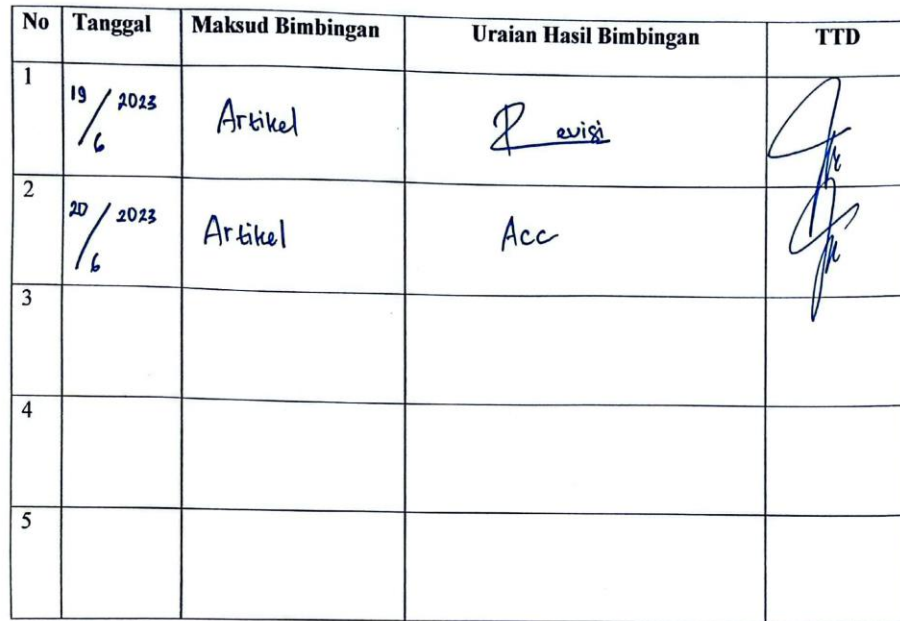 No Tanggal Maksud Bimbingan Uraian Hasil Bimbingan TTD
1 19/6 2023 Artikel Revisi
2 20/6 2023 Artikel Acc
3
4
5